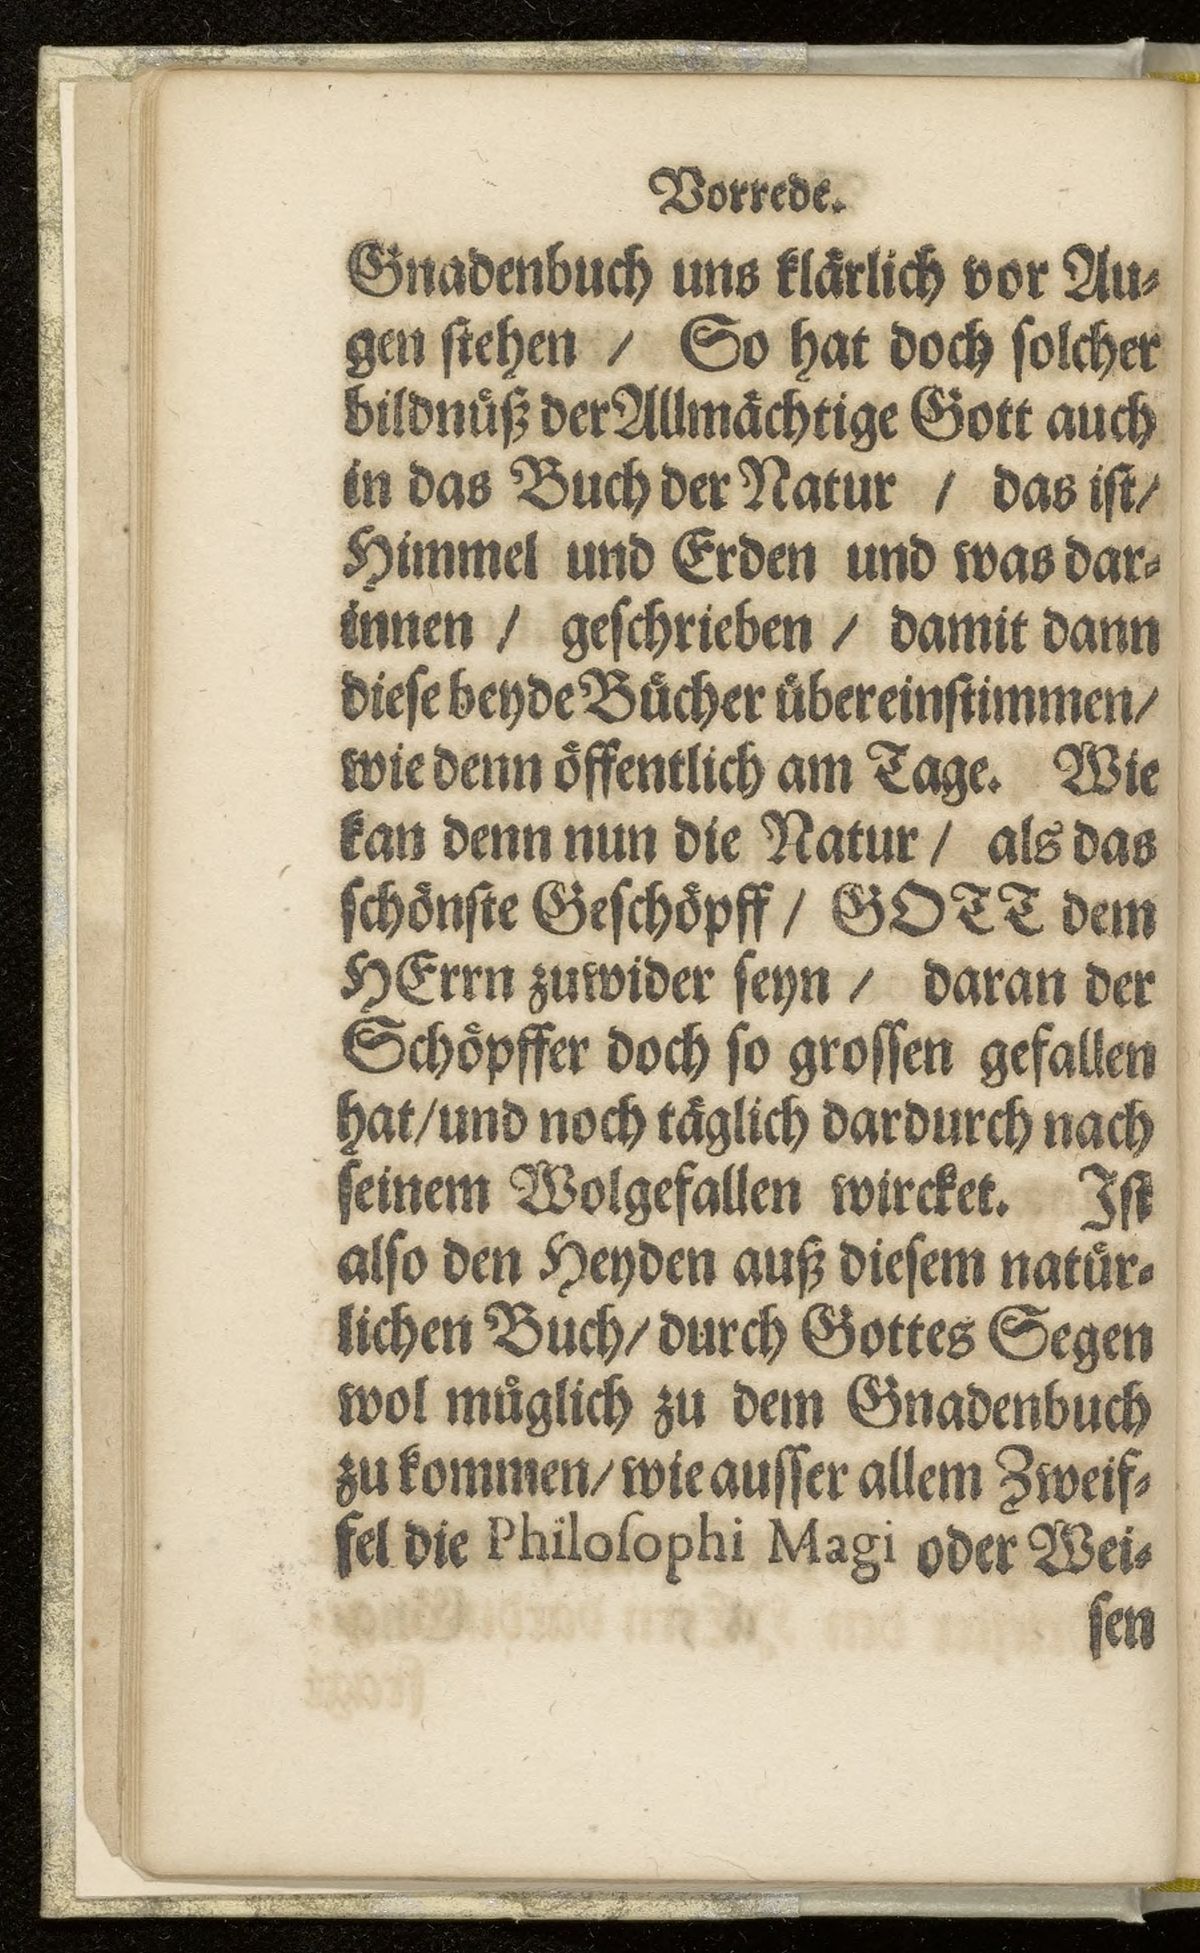 Vorrede.
Gnadenbuch uns klärlich vor Au⸗
gen stehen / So hat doch solcher
bildnüß der Allmächtige Gott auch
in das Buch der Natur / das ist/
Himmel und Erden und was dar⸗
innen / geschrieben / damit dann
diese beyde Bücher übereinstimmen/
wie denn öffentlich am Tage. Wie
kan denn nun die Natur / als das
schönste Geschöpff / GOTT dem
HErrn zuwider seyn / daran der
Schöpffer doch so grossen gefallen
hat/und noch täglich dardurch nach
seinem Wolgefallen wircket. Ist
also den Heyden auß diesem natür⸗
lichen Buch/ durch Gottes Segen
wol müglich zu dem Gnadenbuch
zu kommen/ wie ausser allem Zweif⸗
fel die Philosophi Magi oder Wei⸗
sen